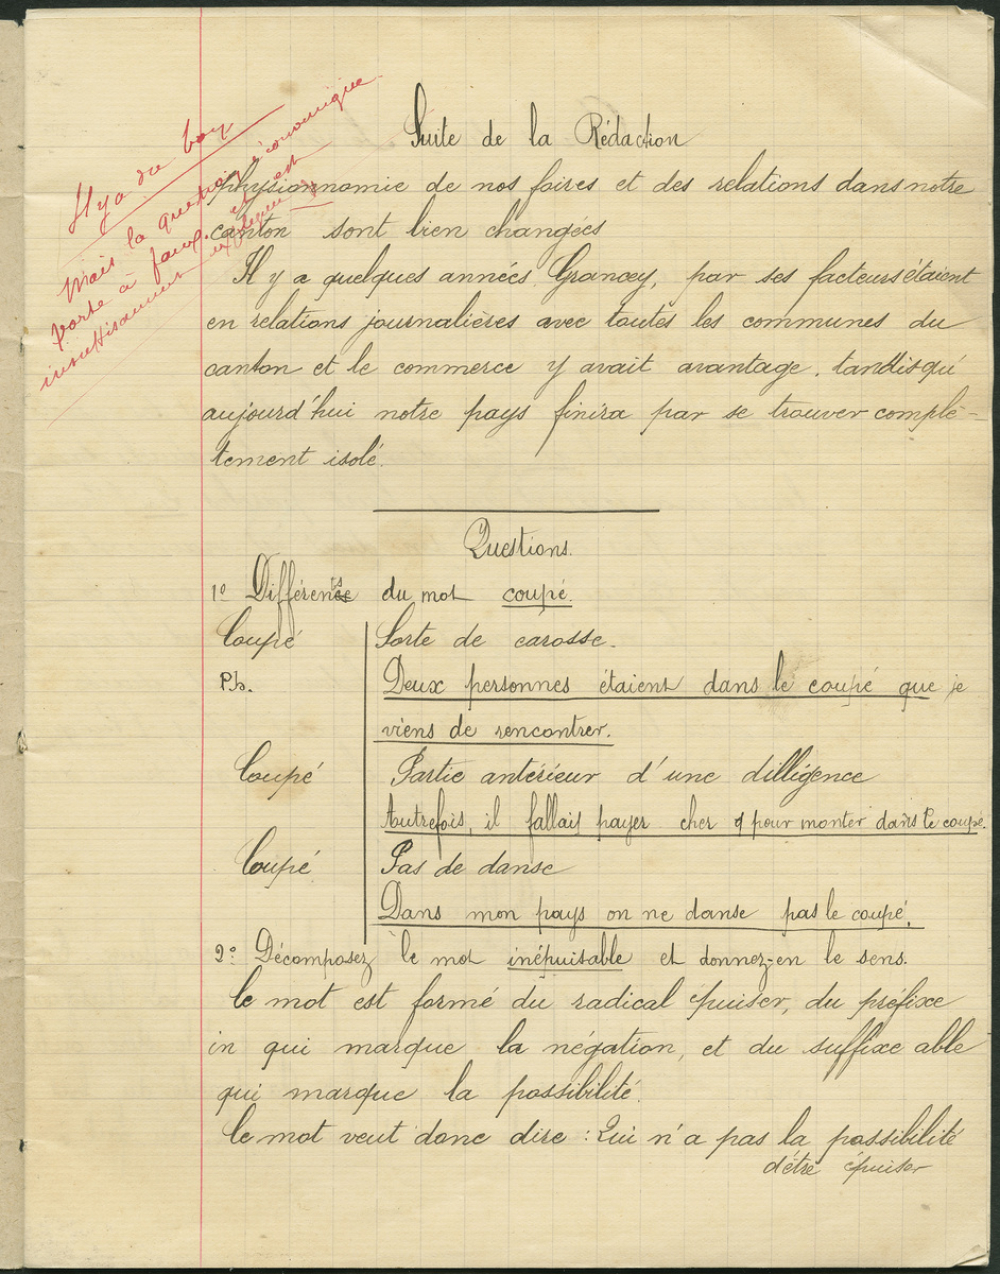 Suite de la Rédaction
physionnomie de nos foires et des relations dans notre
canton sont bien changées
Il y a quelques années Grancey, par ses facteurs étaient
en relations journalières avec toutes les communes du
canton et le commerce y avait avantage, tandisqu'
aujourd'hui notre pays finira par se trouver complè-
tement isolé.
Il y a du bon
Mais la question économique
porte à faux. et est
insuffisamment expliquée
Questions.
1º Différents du mot coupé.
Coupé Sorte de carosse.
Ph. Deux personnes étaient dans le coupé que je
viens de rencontrer.
Coupé Partie antérieur d'une dilligence
Autrefois, il fallait payer cher pour monter dans le coupé.
Coupé Pas de danse
Dans mon pays on ne danse pas le coupé.
2º Décomposez le mot inépuisable et donnez-en le sens.
Le mot est formé du radical épuiser, du préfixe
in qui marque la négation, et du suffixe able
qui marque la possibilité.
Le mot veut donc dire : Qui n'a pas la possibilité
d'être épuiser